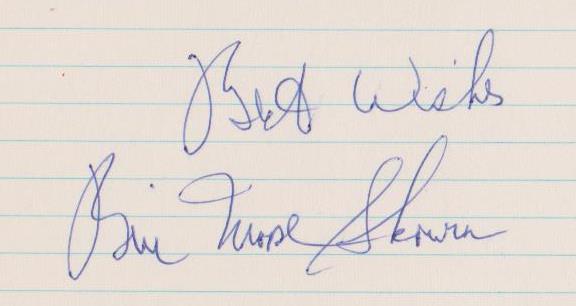 Best Wishes
Bill Moose Skowron